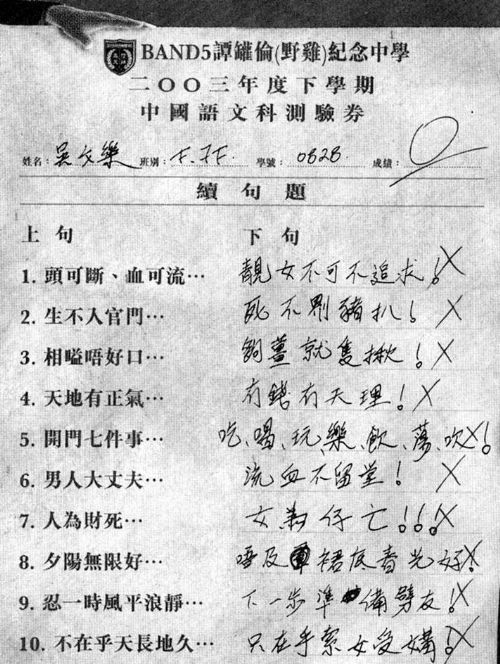 BAND5譚罐倫(野雞)紀念中學
二〇〇三年度下學期
中國語文科測驗券
姓名: 吳文樂 班別: F.5F. 學號: 0828. 成績: 0
續句題
上句 下句
1. 頭可斷、血可流… 靚女不可不追求! X
2. 生不入官門… 死不劏豬扒! X
3. 相嗌唔好口… 夠薑就隻揪! X
4. 天地有正氣… 有錢有天理! X
5. 開門七件事… 吃、喝、玩、樂、飲、蕩、吹! X
6. 男人大丈夫… 流血不留堂! X
7. 人為財死… 女為仔亡!!! X
8. 夕陽無限好… 唔及裙底春光好! X
9. 忍一時風平浪靜… 下一步準備劈友! X
10. 不在乎天長地久… 只在乎索女受媾! X